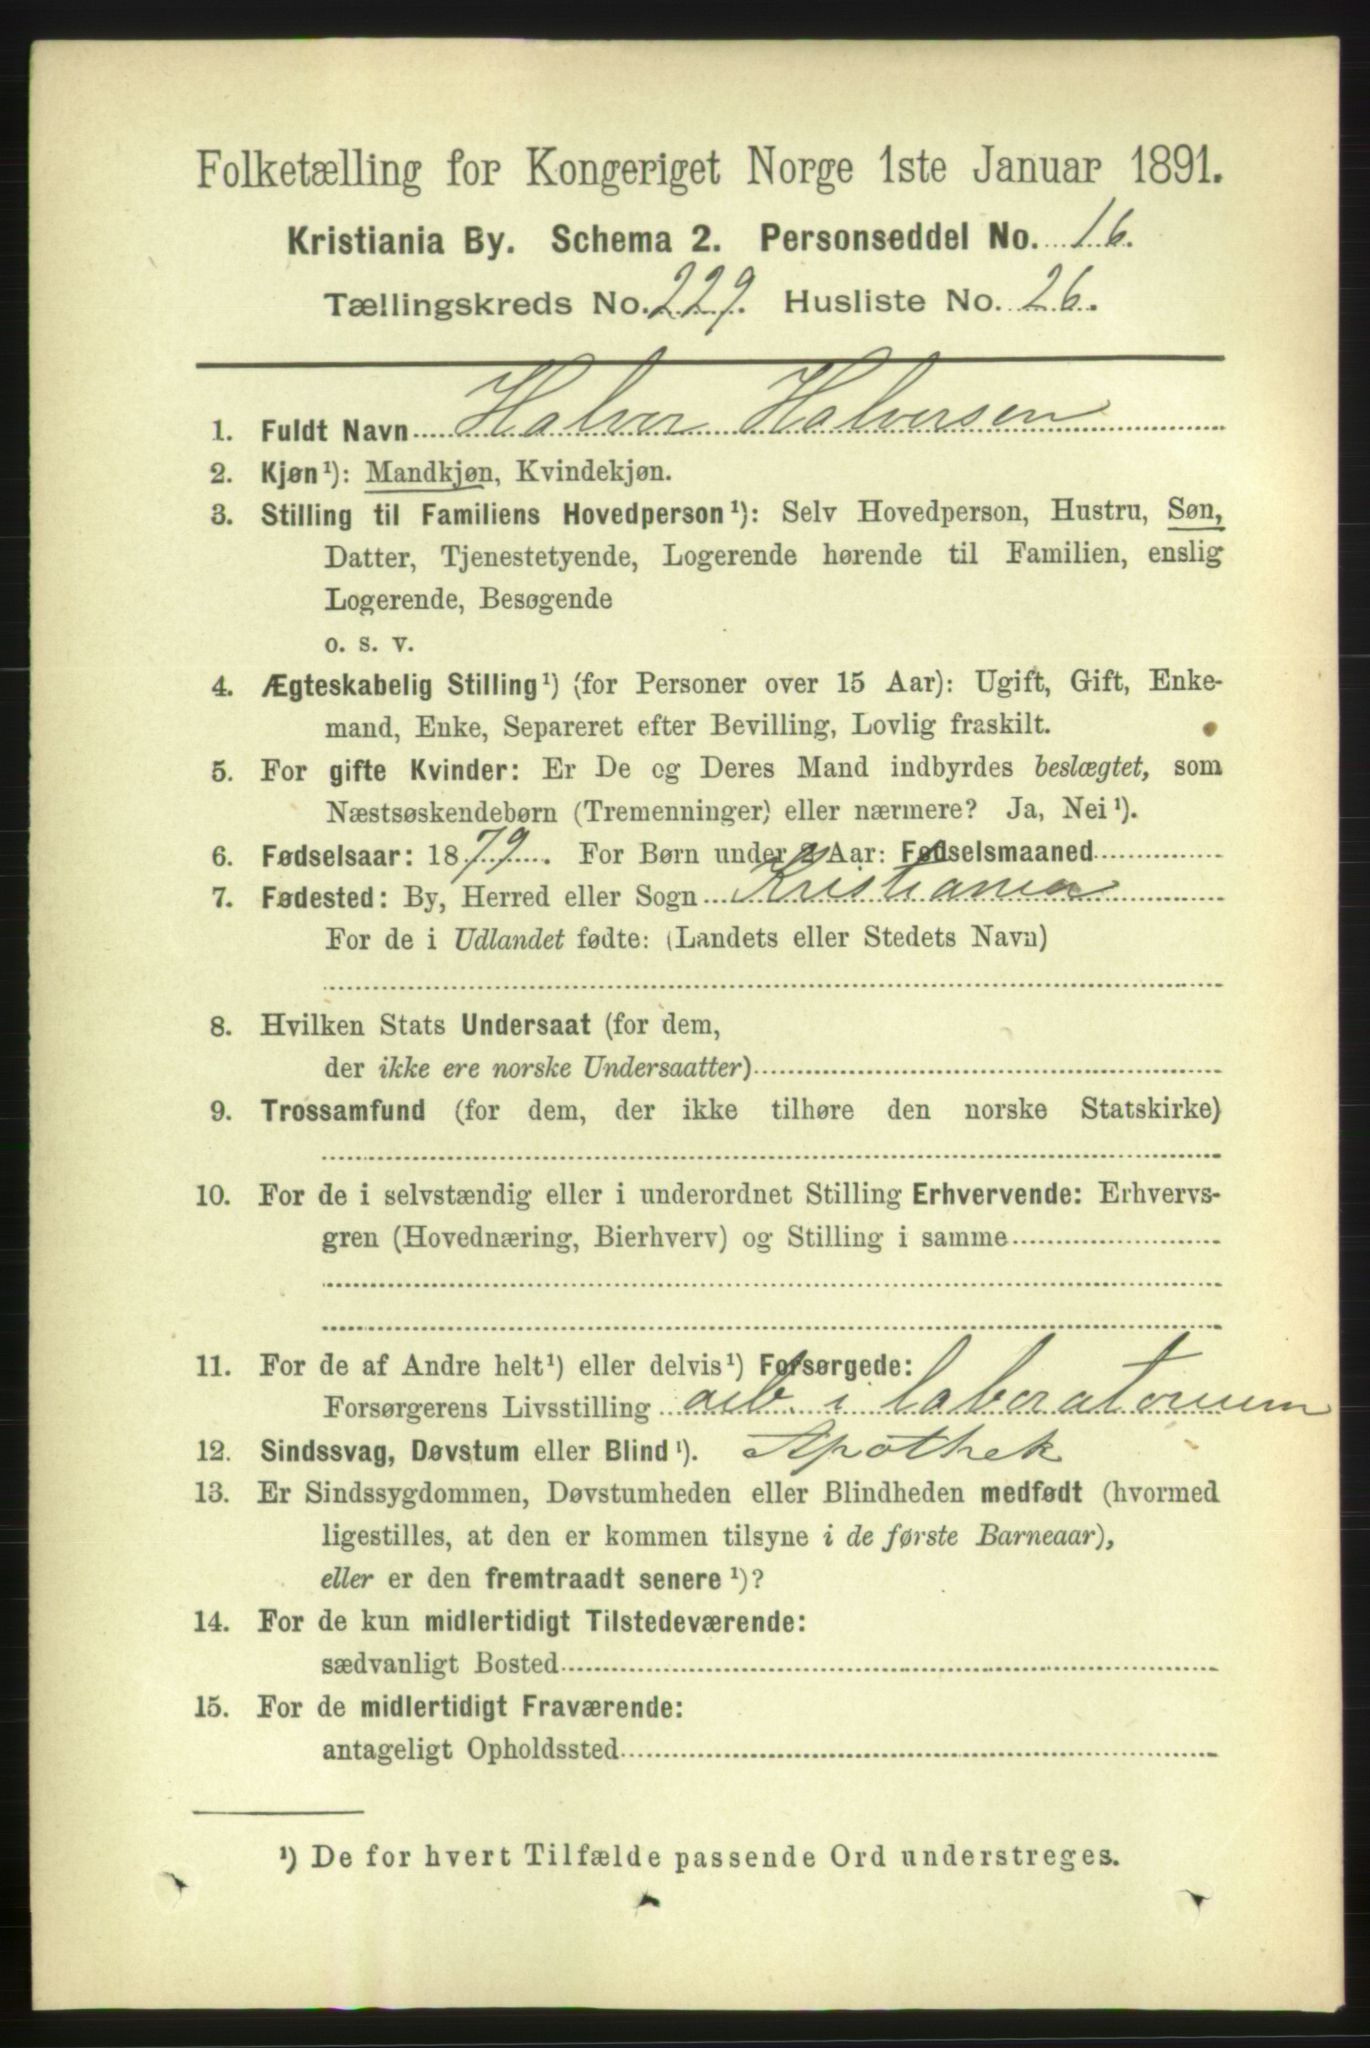 Folketælling for Kongeriget Norge 1ste Januar 1891.
Kristiania By. Schema 2. Personseddel No. 16.
Tællingskreds No. 229. Husliste No. 26.
1. Fuldt Navn Halvor Halvorsen
2. Kjøn¹): Mandkjøn, Kvindekjøn.
3. Stilling til Familiens Hovedperson¹): Selv Hovedperson, Hustru, Søn,
Datter, Tjenestetyende, Logerende hørende til Familien, enslig
Logerende, Besøgende
o. s. v.
4. Ægteskabelig Stilling¹) (for Personer over 15 Aar): Ugift, Gift, Enke-
mand, Enke, Separeret efter Bevilling, Lovlig fraskilt.
5. For gifte Kvinder: Er De og Deres Mand indbyrdes beslægtet, som
Næstsøskendebørn (Tremenninger) eller nærmere? Ja, Nei¹).
6. Fødselsaar: 1879. For Børn under 2 Aar: Fødselsmaaned
7. Fødested: By, Herred eller Sogn Kristiania
For de i Udlandet fødte: (Landets eller Stedets Navn)
8. Hvilken Stats Undersaat (for dem,
der ikke ere norske Undersaatter)
9. Trossamfund (for dem, der ikke tilhøre den norske Statskirke)
10. For de i selvstændig eller i underordnet Stilling Erhvervende: Erhvervs-
gren (Hovednæring, Bierhverv) og Stilling i samme
11. For de af Andre helt¹) eller delvis¹) Forsørgede:
Forsørgerens Livsstilling arb. i laboratorium
12. Sindssvag, Døvstum eller Blind¹). Apothek
13. Er Sindssygdommen, Døvstumheden eller Blindheden medfødt (hvormed
ligestilles, at den er kommen tilsyne i de første Barneaar),
eller er den fremtraadt senere¹)?
14. For de kun midlertidigt Tilstedeværende:
sædvanligt Bosted
15. For de midlertidigt Fraværende:
antageligt Opholdssted
¹) De for hvert Tilfælde passende Ord understreges.